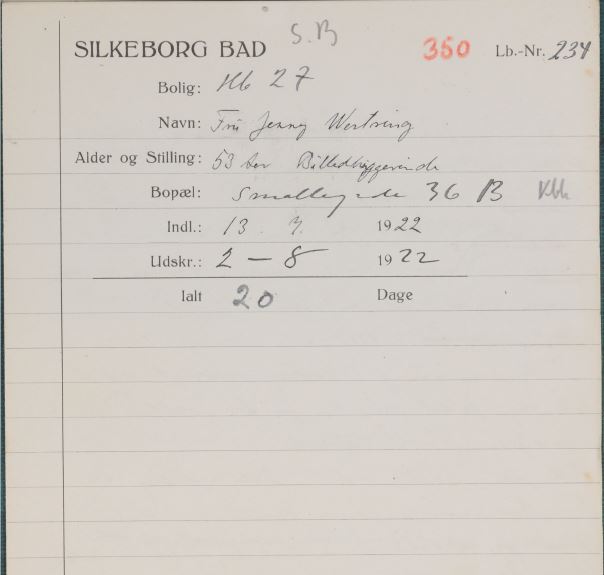 S.B
SILKEBORG BAD 350 Lb.-Nr. 234
Bolig: Hb 27
Navn: Fru Jenny Westring
Alder og Stilling: 53 Aar Billedhuggerinde
Bopæl: Smallegade 36 B Kbh
Indl.: 13. 7. 1922
Udskr.: 2 – 8 1922
Ialt 20 Dage